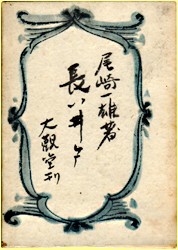 尾崎一雄著
長い井戸
大觀堂刊